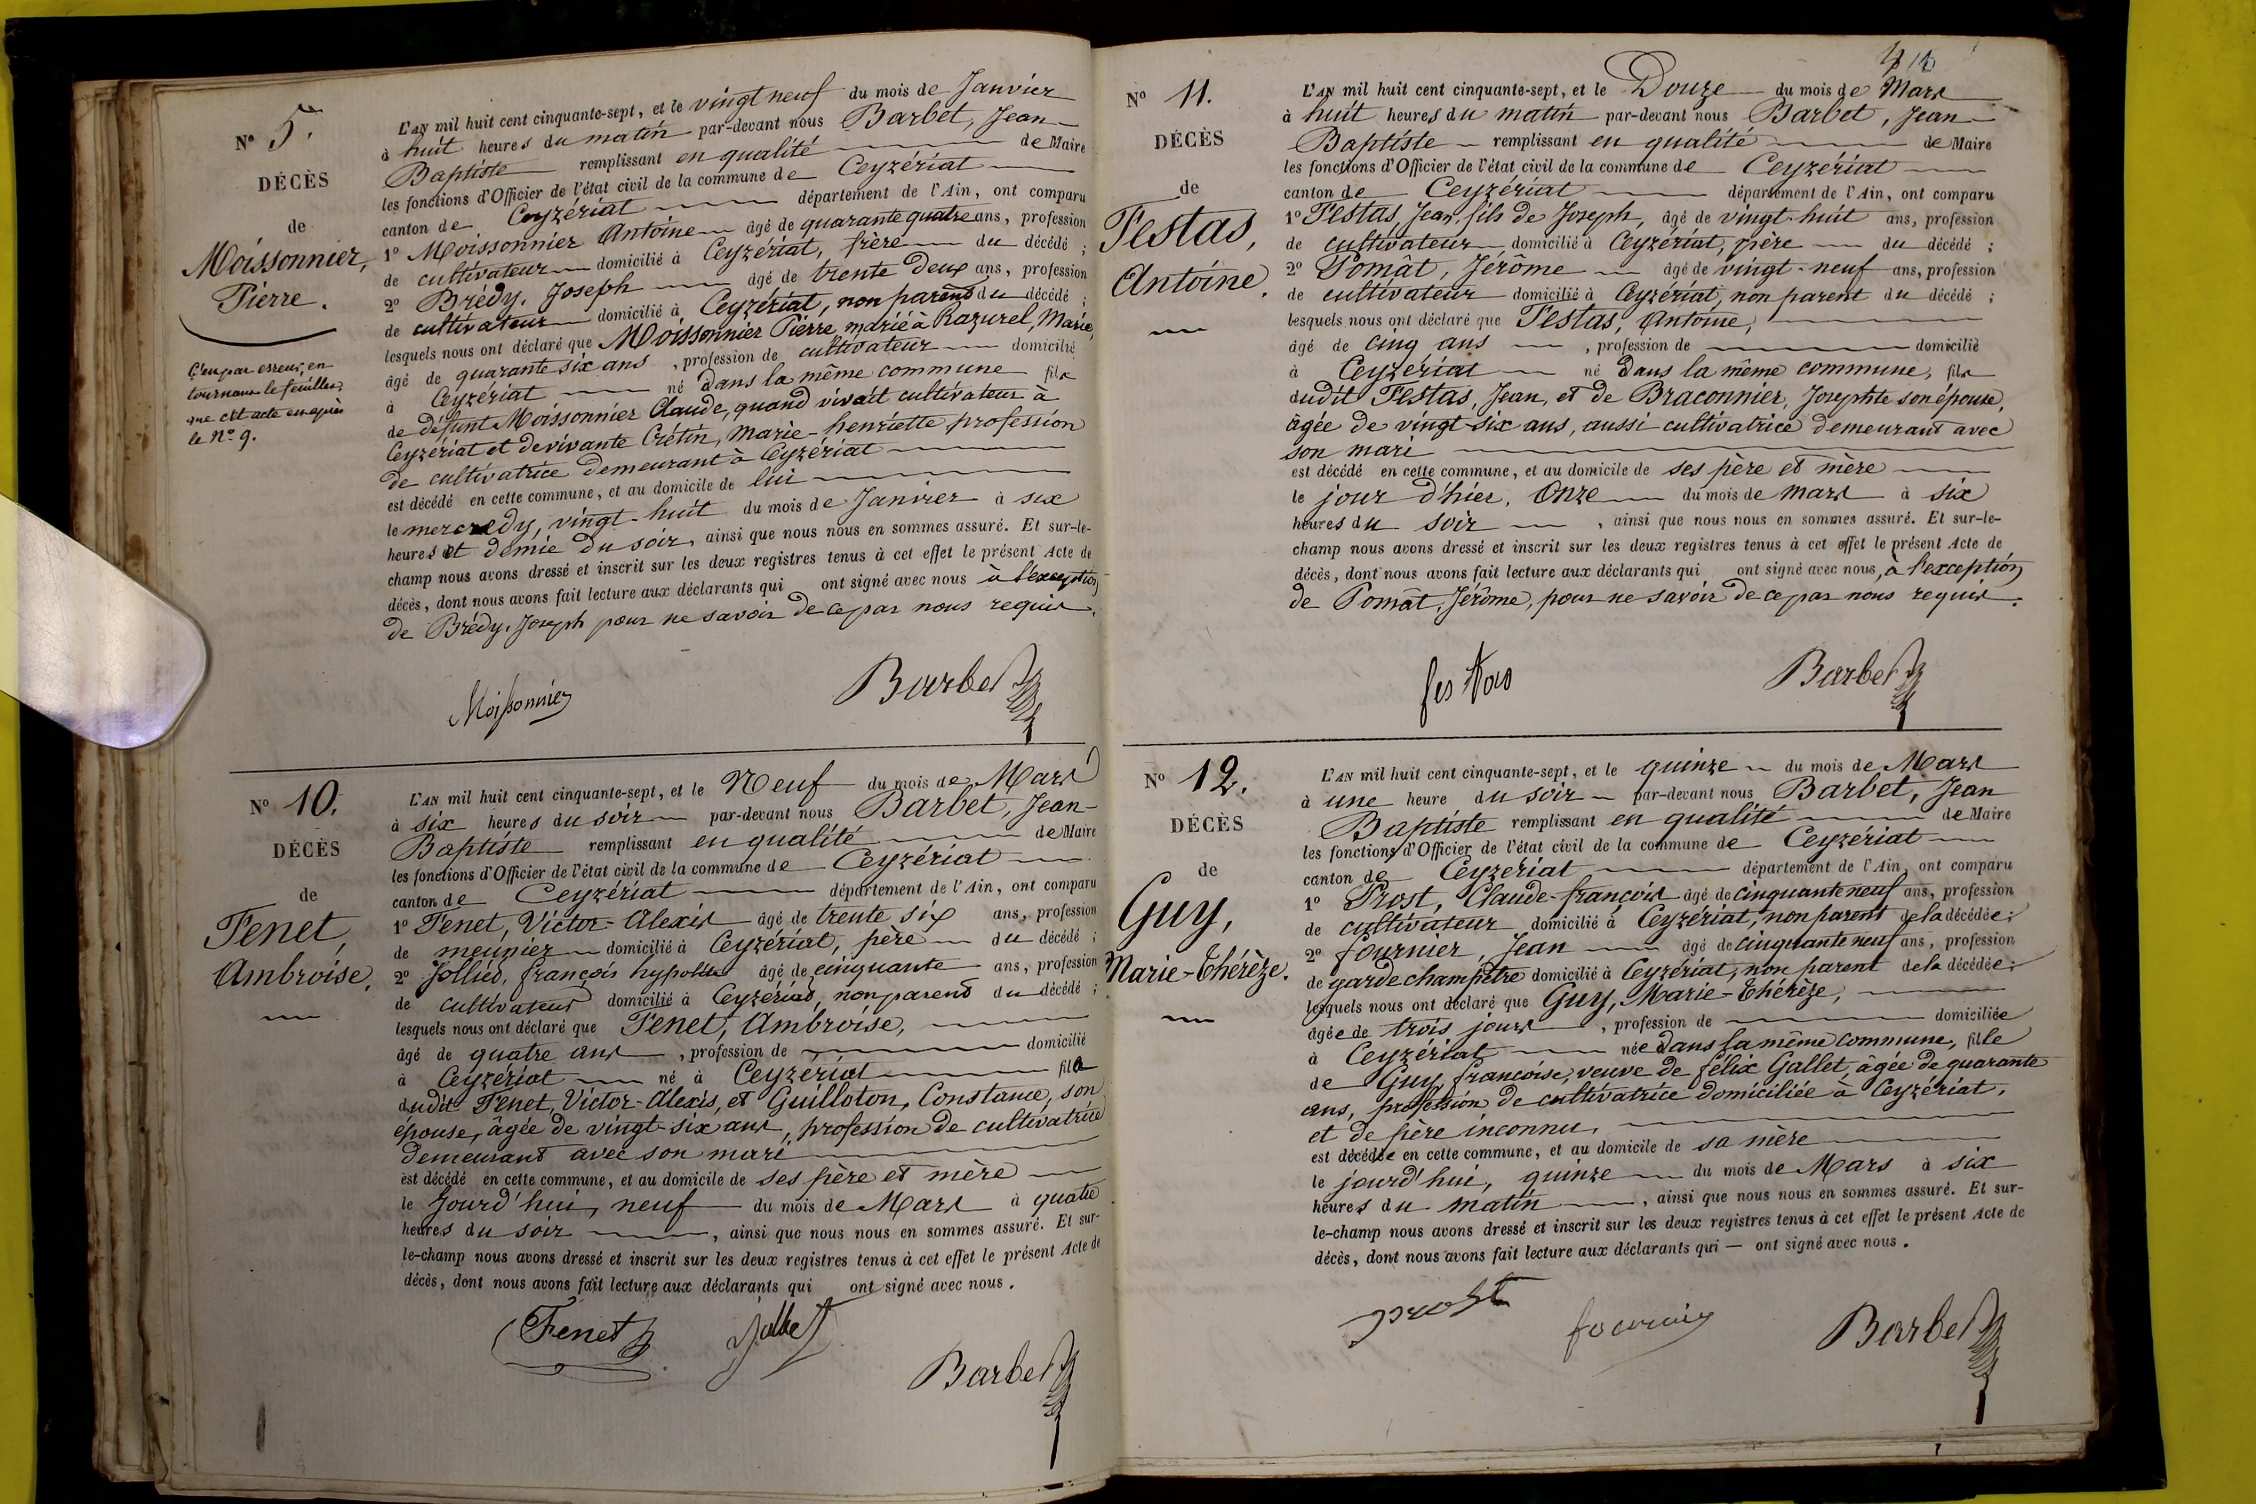 N° 5.
DÉCÈS
de
Moissonnier,
Pierre.
C'est par erreur, en
tournant le feuillet,
que cet acte est après
le N° 9.
L'AN mil huit cent cinquante-sept, et le vingt neuf du mois de Janvier
à huit heures du matin par-devant nous Barbet, Jean-
Baptiste remplissant en qualité de Maire
les fonctions d'Officier de l'état civil de la commune de Ceyzériat
canton de Ceyzériat département de l'Ain, ont comparu
1° Moissonnier Antoine âgé de quarante quatre ans, profession
de cultivateur domicilié à Ceyzériat, frère du décédé ;
2° Brédy, Joseph âgé de trente deux ans, profession
de cultivateur domicilié à Ceyzériat, non parent du décédé ;
lesquels nous ont déclaré que Moissonnier Pierre, marié à Razurel, Marie,
âgé de quarante six ans , profession de cultivateur domicilié
à Ceyzériat né dans la même commune fils
de défunt Moissonnier Claude, quand vivait cultivateur à
Ceyzériat et de vivante Crétin, Marie-henriette profession
de cultivatrice demeurant à Ceyzériat
est décédé en cette commune, et au domicile de lui
le mercredy, vingt-huit du mois de Janvier à six
heures et demie du soir, ainsi que nous nous en sommes assuré. Et sur-le-
champ nous avons dressé et inscrit sur les deux registres tenus à cet effet le présent Acte de
décès, dont nous avons fait lecture aux déclarants qui ont signé avec nous à l'exception
de Brédy, Joseph pour ne savoir de ce par nous requis.
Moissonnier Barbet
N° 10.
DÉCÈS
de
Fenet,
Ambroise.
L'AN mil huit cent cinquante-sept, et le Neuf du mois de Mars
à six heures du soir par-devant nous Barbet, Jean-
Baptiste remplissant en qualité de Maire
les fonctions d'Officier de l'état civil de la commune de Ceyzériat
canton de Ceyzériat département de l'Ain, ont comparu
1° Fenet, Victor-Alexis âgé de trente six ans, profession
de meunier domicilié à Ceyzériat, père du décédé ;
2° Jolliet, françois âgé de cinquante ans, profession
de cultivateur domicilié à Ceyzériat, non parent du décédé ;
lesquels nous ont déclaré que Fenet, Ambroise,
âgé de quatre ans , profession de domicilié
à Ceyzériat né à Ceyzériat fils
dudit Fenet, Victor-Alexis, et Guilloton, Constance, son
épouse, âgée de vingt-six ans, profession de cultivatrice
demeurant avec son mari
est décédé en cette commune, et au domicile de ses père et mère
le Jourd'hui, neuf du mois de Mars à quatre
heures du soir , ainsi que nous nous en sommes assuré. Et sur-
le-champ nous avons dressé et inscrit sur les deux registres tenus à cet effet le présent Acte de
décès, dont nous avons fait lecture aux déclarants qui ont signé avec nous.
Fenet
Barbet
N° 11.
DÉCÈS
de
Festas,
Antoine.
L'AN mil huit cent cinquante-sept, et le Douze du mois de Mars
à huit heures du matin par-devant nous Barbet, Jean-
Baptiste remplissant en qualité de Maire
les fonctions d'Officier de l'état civil de la commune de Ceyzériat
canton de Ceyzériat département de l'Ain, ont comparu
1° Festas, Jean fils de Joseph, âgé de vingt-huit ans, profession
de cultivateur domicilié à Ceyzériat, père du décédé ;
2° Pomât, Jérôme âgé de vingt-neuf ans, profession
de cultivateur domicilié à Ceyzériat, non parent du décédé ;
lesquels nous ont déclaré que Festas, Antoine,
âgé de cinq ans , profession de domicilié
à Ceyzériat né dans la même commune, fils
dudit Festas, Jean, et de Braconnier, Josephte son épouse,
âgée de vingt-six ans, aussi cultivatrice demeurant avec
son mari
est décédé en cette commune, et au domicile de ses père et mère
le jour d'hier, Onze du mois de mars à six
heures du soir , ainsi que nous nous en sommes assuré. Et sur-le-
champ nous avons dressé et inscrit sur les deux registres tenus à cet effet le présent Acte de
décès, dont nous avons fait lecture aux déclarants qui ont signé avec nous, à l'exception
de Pomât, Jérôme, pour ne savoir de ce par nous requis.
festas Barbet
N° 12.
DÉCÈS
de
Guy,
Marie-Thérèze.
L'AN mil huit cent cinquante-sept, et le quinze du mois de Mars
à une heure du soir par-devant nous Barbet, Jean
Baptiste remplissant en qualité de Maire
les fonctions d'Officier de l'état civil de la commune de Ceyzériat
canton de Ceyzériat département de l'Ain, ont comparu
1° Prost, Claude-françois âgé de cinquante neuf ans, profession
de cultivateur domicilié à Ceyzériat, non parent de la décédée ;
2° fournier, Jean âgé de cinquante neuf ans, profession
de garde champêtre domicilié à Ceyzériat, non parent de la décédée ;
lesquels nous ont déclaré que Guy, Marie-Thérèze,
âgée de trois jours , profession de domiciliée
à Ceyzériat née dans la même commune, fille
de Guy, françoise, veuve de félix Gallet, âgée de quarante
ans, profession de cultivatrice domiciliée à Ceyzériat,
et de père inconnu,
est décédée en cette commune, et au domicile de sa mère
le jourd'hui, quinze du mois de Mars à six
heures du matin , ainsi que nous nous en sommes assuré. Et sur-
le-champ nous avons dressé et inscrit sur les deux registres tenus à cet effet le présent Acte de
décès, dont nous avons fait lecture aux déclarants qui — ont signé avec nous.
prost fournier Barbet